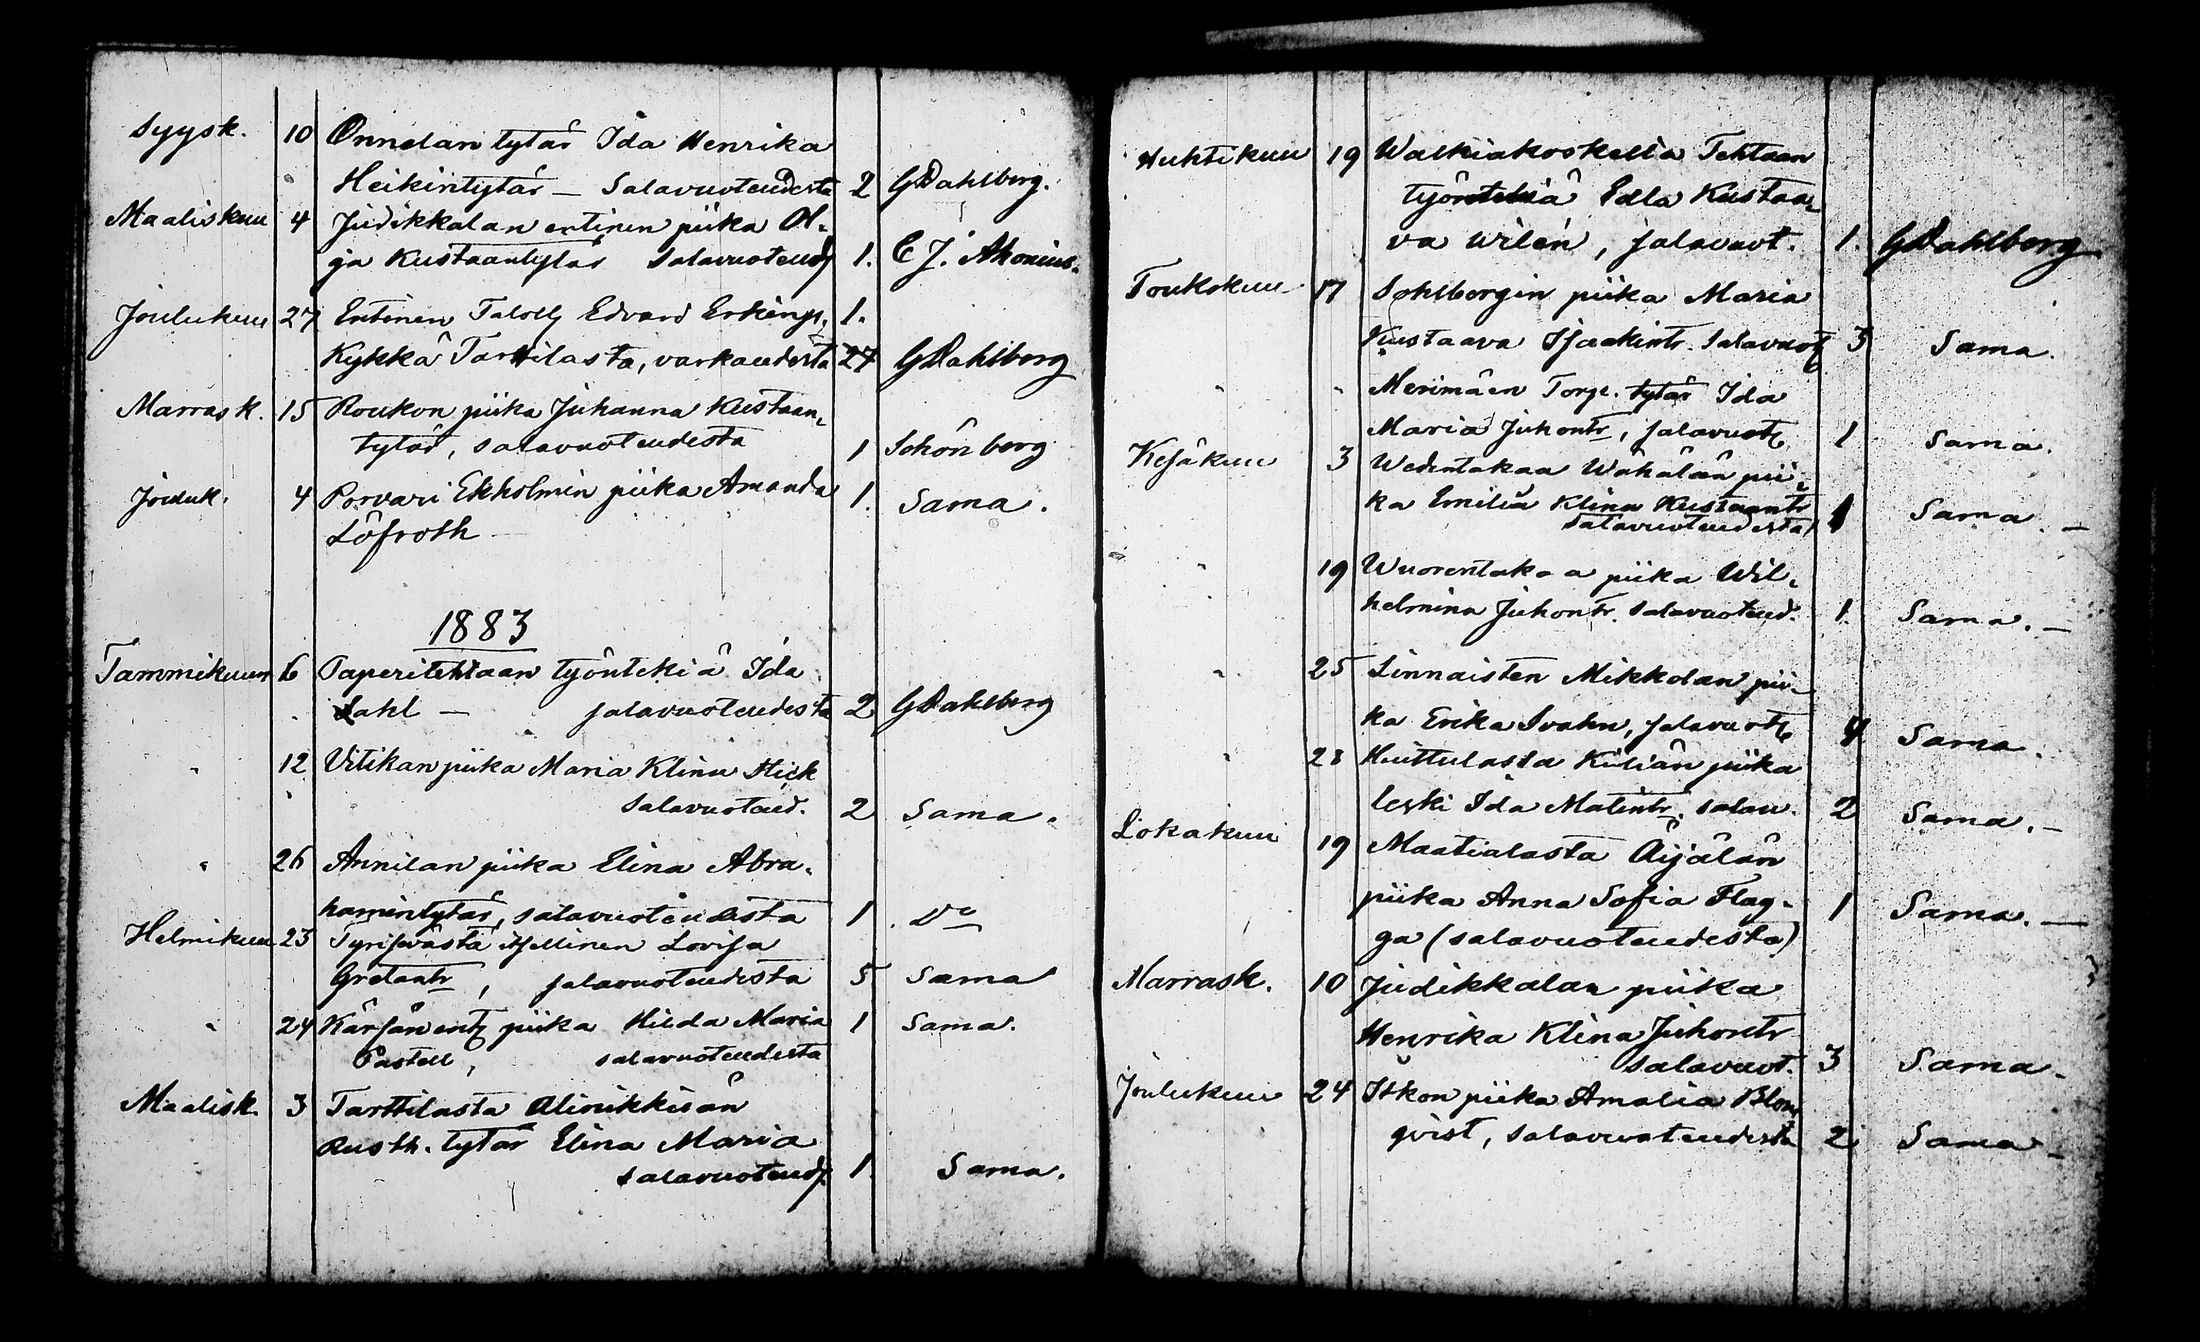 Syysk. 10 Onnelan tytär Ida Henrika
Heikintytär — Salavuoteudesta 2 GDahlberg.
Maaliskuu 4 Judikkalan entinen piika Ol-
ga Kustaantytär Salavuoteud 1. C J. Ahonius.
Joulukuu 27 Entinen Talol Edvard Erkinp. 1.
Kykkä Tarttilasta, varkaudesta 27 GDahlberg
Marrask. 15 Roukon piika Juhanna Kustaan-
tytär, salavuoteudesta 1 Schönberg
Jouluk. 4 Porvari Ekholmin piika Amanda 1. Sama.
Löfroth
1883
Tammikuun 6 Paperitehtaan työntekiä Ida
Lahl — salavuoteudesta 2 GDahlberg
" 12 Uitikan piika Maria Klina Hick
salavuoteud. 2 Sama.
" 26 Annilan piika Elina Abra-
hamintytär, salavuoteudesta 1 Do
Helmikuu 23 Tyrisevästä itsellinen Lovisa
Gretantr, salavuoteudesta 5 Sama
" 24 Kärsän ent piika Hilda Maria 1 Sama.
Pastell, salavuoteudesta
Maalisk. 3 Tarttilasta Alinikkisän
Rusth. tytär Elina Maria
salavuoteud 1. Sama.
Huhtikuu 19 Walkiakoskella Tehtaan
työntekiä Edla Kustaa-
va Wilén, salavuot. 1. GDahlberg
Toukokuu 17 Sohlbergin piika Maria
Kustaava Isaakintr. Salavuot 3 Sama.
" " Merimäen Torp. tytär Ida
Maria Juhontr, salavuot 1 Sama.
Kesäkuu 3 Wedentakaa Wähälän pii-
ka Emilia Klina Kustaantr
salavuoteudesta 1 Sama. —
" 19 Wuorentakaa piika Wil-
helmina Juhontr. salavuoteud. 1. Sama. —
" 25 Linnaisten Mikkolan pii-
ka Erika Svahn, salavuot 4 Sama.
" 28 Huittulassa Kiliän piika
leski Ida Matintr. salav. 2 Sama. —
Lokakuu 19 Maatialasta Äijälän
piika Anna Sofia Flag- 1 Sama. —
ga (salavuoteudesta)
Marrask. 10 Judikkalan piika
Henrika Klina Juhontr
salavuot. 3 Sama.
Joulukuu 24 Itkon piika Amalia Blom
qvist, salavuoteudesta 2 Sama